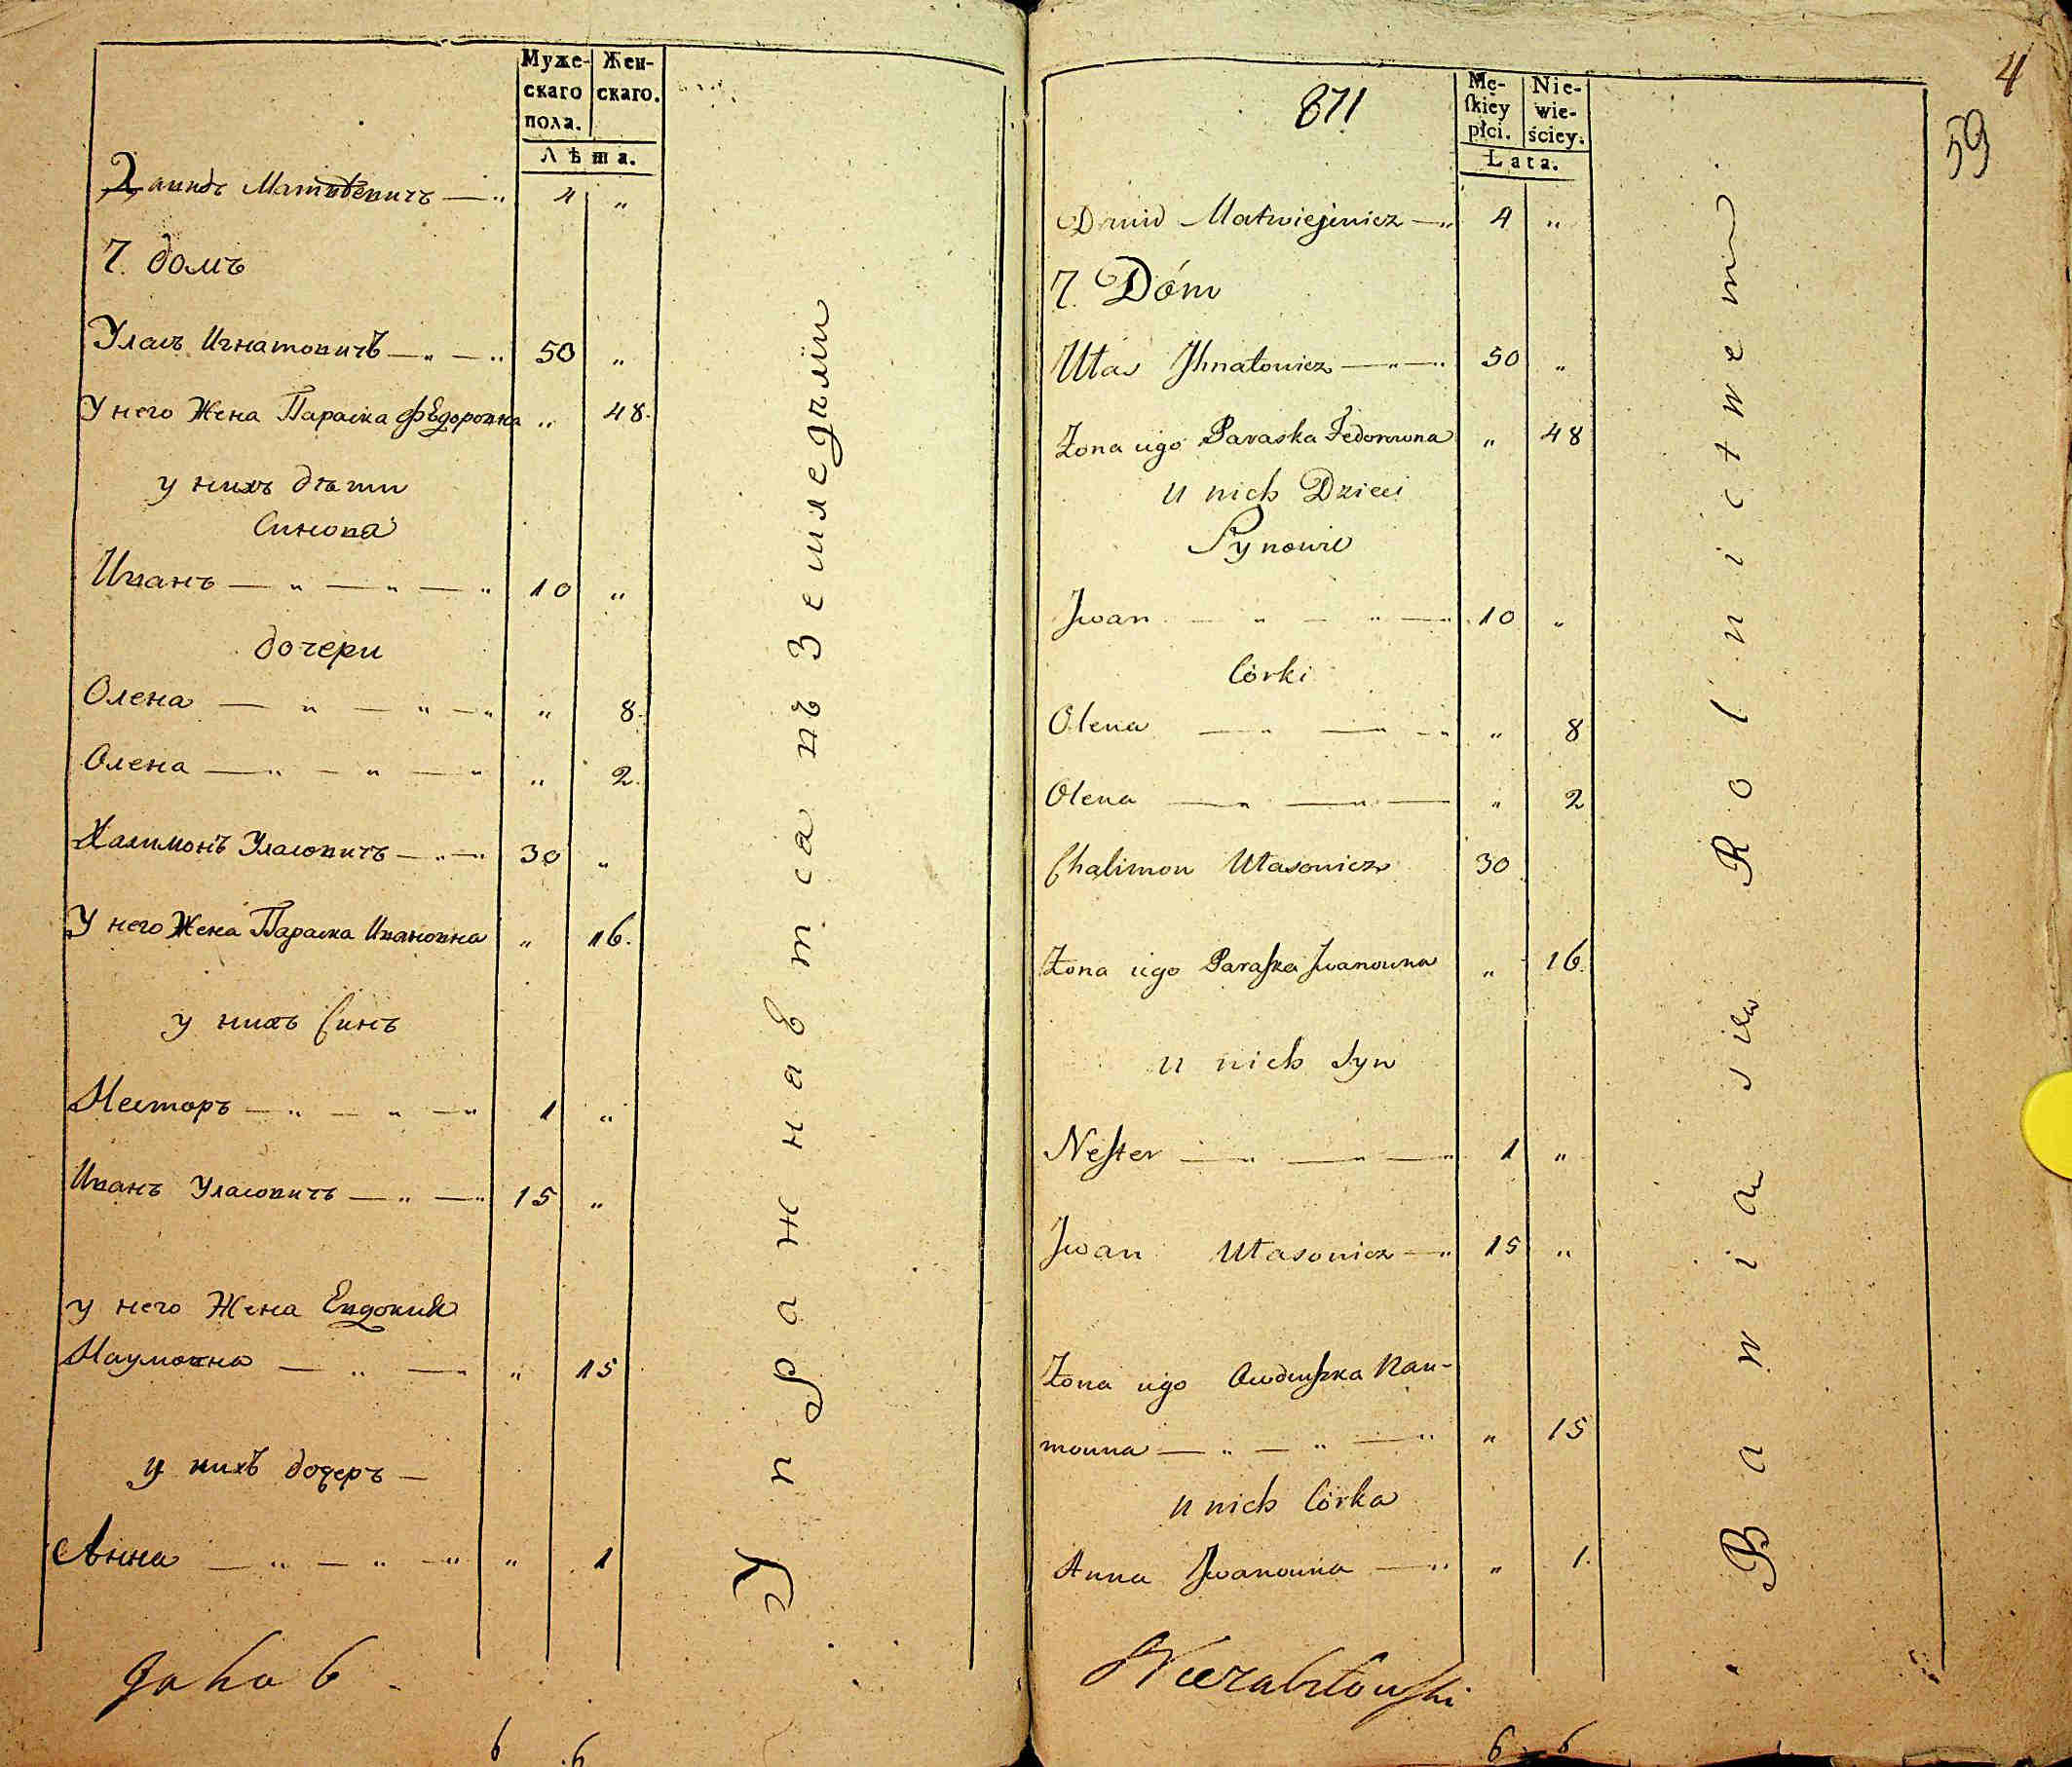 Муже-
скаго
пола.
Жен-
скаго.
Лѣта.
Давидъ Матвѣевичъ — „ 4 „
7. домъ
Уласъ Игнатовичъ — „ — „ 50 „
У него Жена Параска Фѣдоровна „ 48.
у нихъ дѣти
Синовя
Иванъ — „ — „ — „ 10 „
дочери
Олена — „ — „ — „ „ 8.
Олена — „ — „ — „ „ 2.
Халимонъ Уласовичъ — „ — 30 „
У него Жена Параска Ивановна „ 16.
у нихъ Синъ
Несторъ — „ — „ — „ 1 „
Иванъ Уласовичъ — „ — „ 15 „
у него Жена Евдокия
Наумовна — „ — „ „ 15
у нихъ дочеръ —
Анна — „ — „ — „ „ 1
Упражнаетса въ Земледѣлии
Jakob
6 6
871
4
59
Mę-
skiey
płci.
Nie-
wie-
ściey.
Lata.
Dawid Matwiejewicz — „ 4 „
7. Dóm
Ułas Jhnatowicz — „ — „ 50 „
Żona iego Paraska Fedorowna „ 48
u nich Dzieci
Synowie
Jwan — „ — „ — „ 10 „
Córki
Olena — „ — „ — „ „ 8
Olena — „ — „ — „ 2
Chalimon Ułasowicz 30
Żona iego Paraska Jwanowna „ 16.
u nich Syn
Nester — „ — „ — „ 1 „
Jwan Ułasowicz — „ 15 „
Żona iego Awduszka Nau-
mowna — „ — „ — „ „ 15
u nich Córka
Anna Jwanowna — „ „ 1.
Bawia sie Rolnictwem
6 6